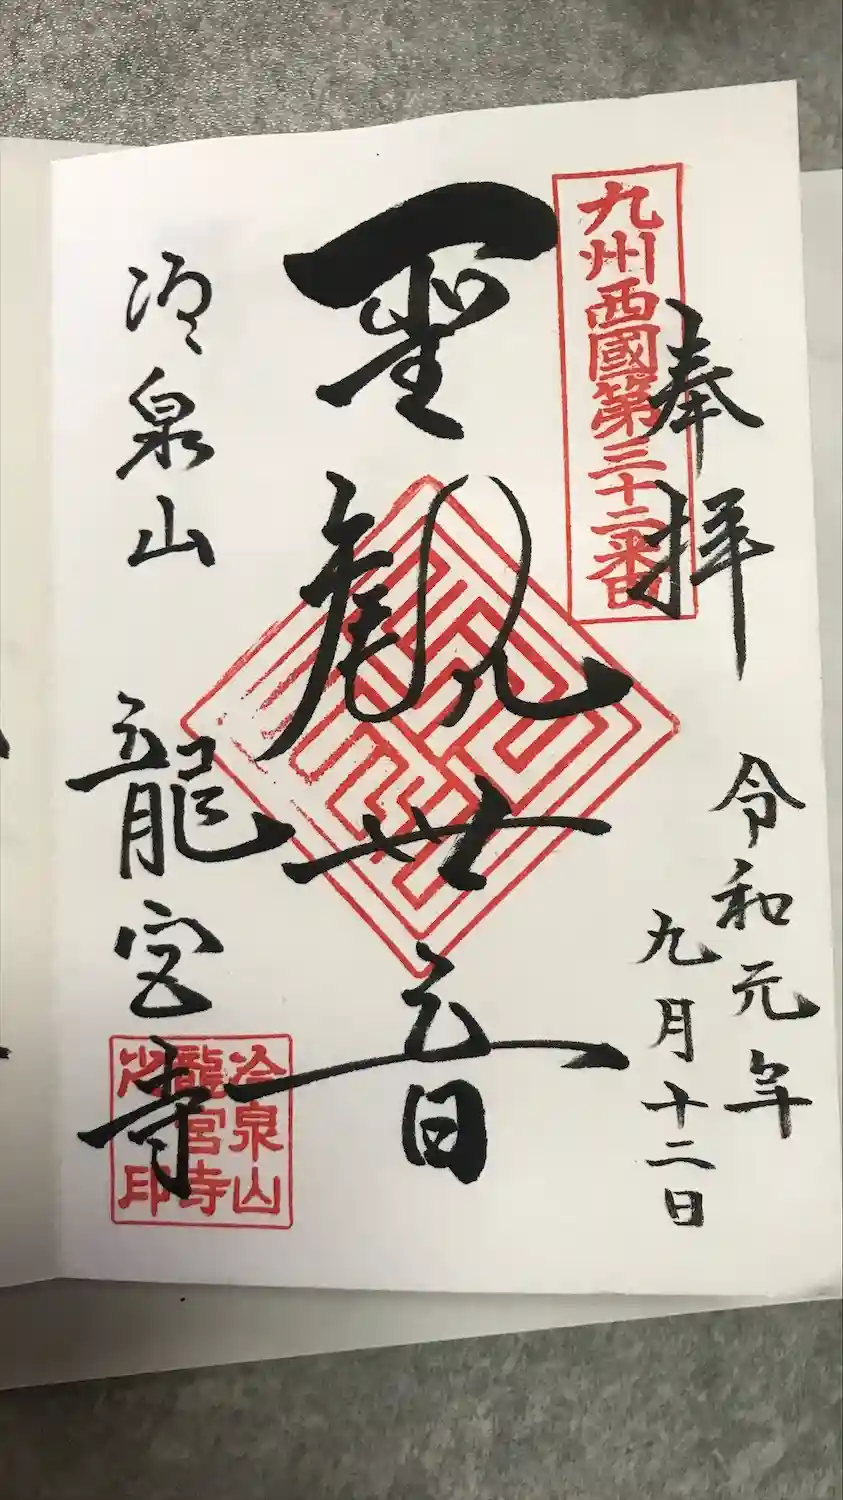 九州西國第三十二番
奉拝
令和元年
九月十二日
聖観世音
冷泉山 龍宮寺
冷泉山
龍宮寺
印